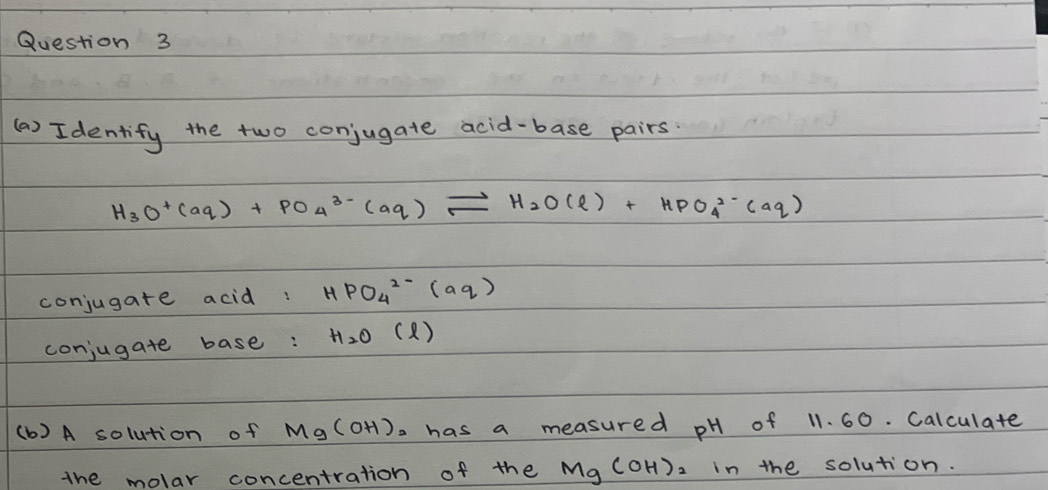 Question 3
(a) Identify the two conjugate acid-base pairs.
H₃O⁺(aq) + PO₄³⁻(aq) ⇌ H₂O(l) + HPO₄²⁻(aq)
conjugate acid : HPO₄²⁻(aq)
conjugate base : H₂O (l)
(b) A solution of Mg(OH)₂ has a measured pH of 11.60. Calculate
the molar concentration of the Mg(OH)₂ in the solution.